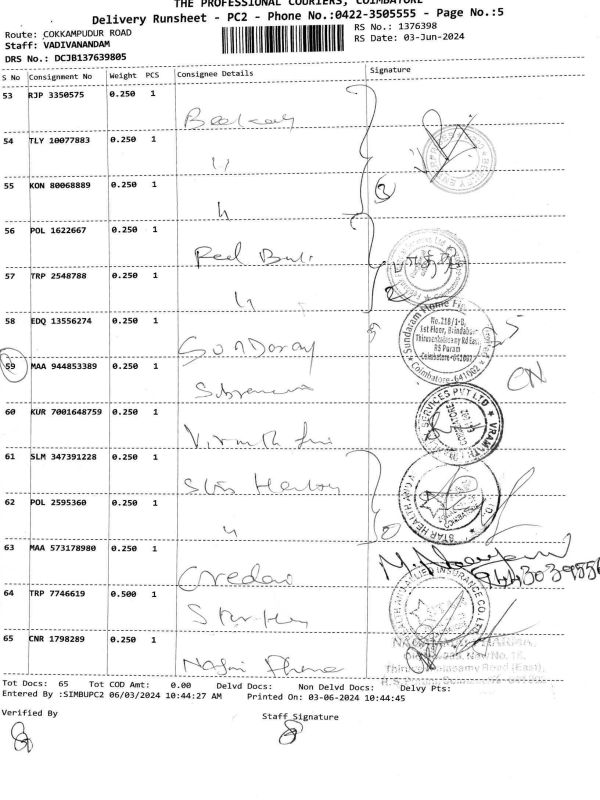 THE PROFESSIONAL COURIERS, COIMBATORE
Delivery Runsheet - PC2 - Phone No.:0422-3505555 - Page No.:5
Route: COKKAMPUDUR ROAD
RS No.: 1376398
Staff: VADIVANANDAM
RS Date: 03-Jun-2024
DRS No.: DCJB137639805
S No Consignment No Weight PCS Consignee Details Signature
53 RJP 3350575 0.250 1
54 TLY 10077883 0.250 1
55 KON 80068889 0.250 1
56 POL 1622667 0.250 1
Red Bull
57 TRP 2548788 0.250 1
58 EDQ 13556274 0.250 1
Sundaram Home Fin
No.218/1-B,
1st Floor, Brindaban
Thiruvenkatasamy Rd East,
RS Puram
Coimbatore-641002
Coimbatore-641002
59 MAA 944853389 0.250 1
CN
60 KUR 7001648759 0.250 1
SERVICES PVT LTD
61 SLM 347391228 0.250 1
STAR HEALTH
62 POL 2595360 0.250 1
63 MAA 573178980 0.250 1
Credai
9443039556
64 TRP 7746619 0.500 1
INSURANCE CO. LTD
65 CNR 1798289 0.250 1
Road (East),
Tot Docs: 65 Tot COD Amt: 0.00 Delvd Docs: Non Delvd Docs: Delvy Pts:
Entered By :SIMBUPC2 06/03/2024 10:44:27 AM Printed On: 03-06-2024 10:44:45
Verified By
Staff Signature